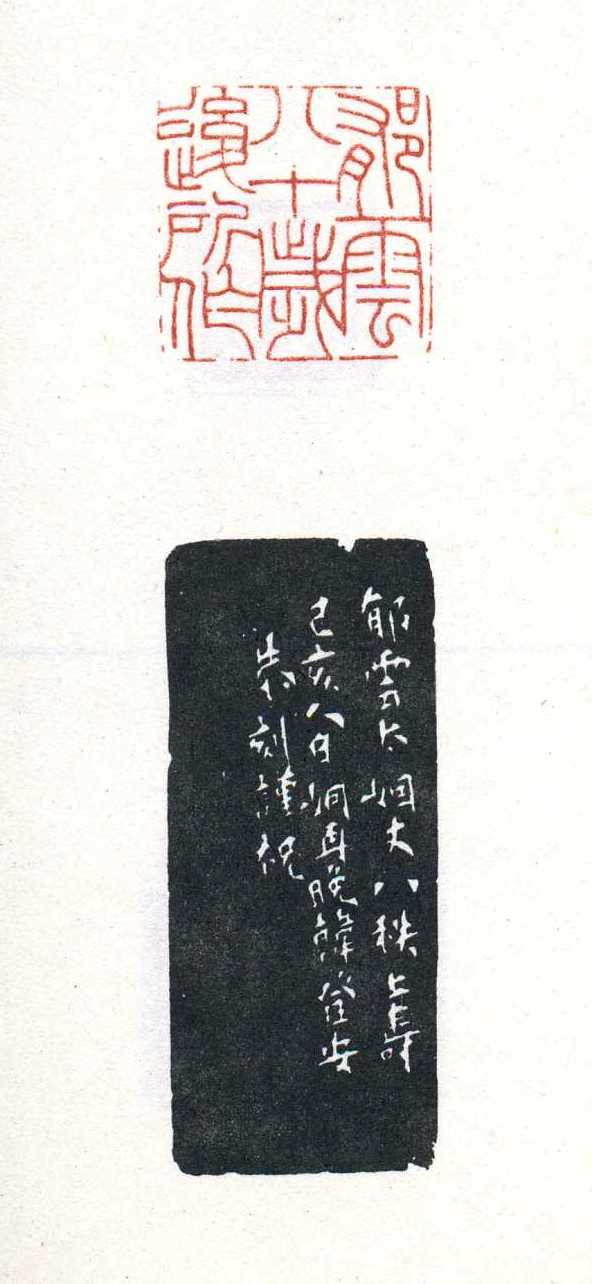 郁雲
八十歲
後所作
郁雲太姻丈八秩上壽
己亥人日姻再晚韓登安
恭刻謹祝